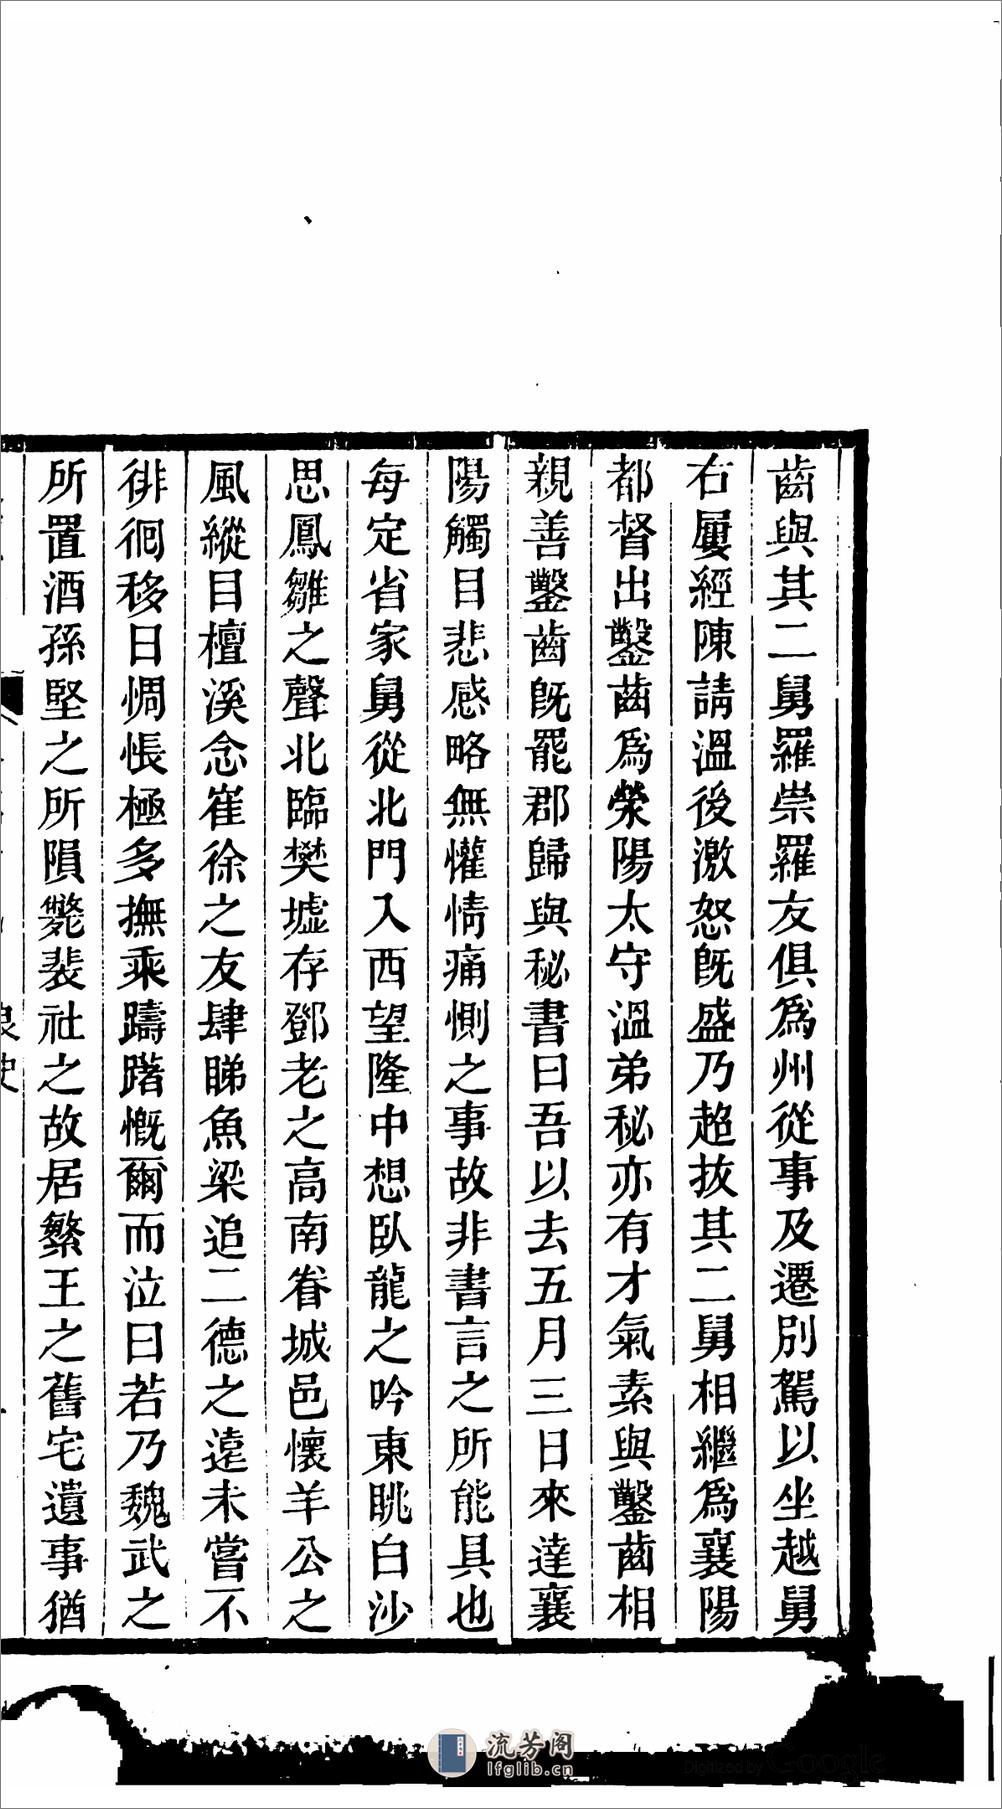 齒與其二舅羅崇羅友俱爲州從事及遷別駕以坐越舅
右屢經陳請溫後激怒旣盛乃超拔其二舅相繼爲襄陽
都督出鑿齒爲滎陽太守溫弟秘亦有才氣素與鑿齒相
親善鑿齒旣罷郡歸與秘書曰吾以去五月三日來達襄
陽觸目悲感略無懽情痛惻之事故非書言之所能具也
每定省家舅從北門入西望隆中想臥龍之吟東眺白沙
思鳳雛之聲北臨樊墟存鄧老之高南眷城邑懷羊公之
風縱目檀溪念崔徐之友肆睇魚梁追二德之遠未嘗不
徘徊移日惆悵極多撫乘躊躇慨爾而泣曰若乃魏武之
所置酒孫堅之所隕斃裴社之故居繁王之舊宅遺事猶
流芳阁
lfglib.cn
Digitized by Google